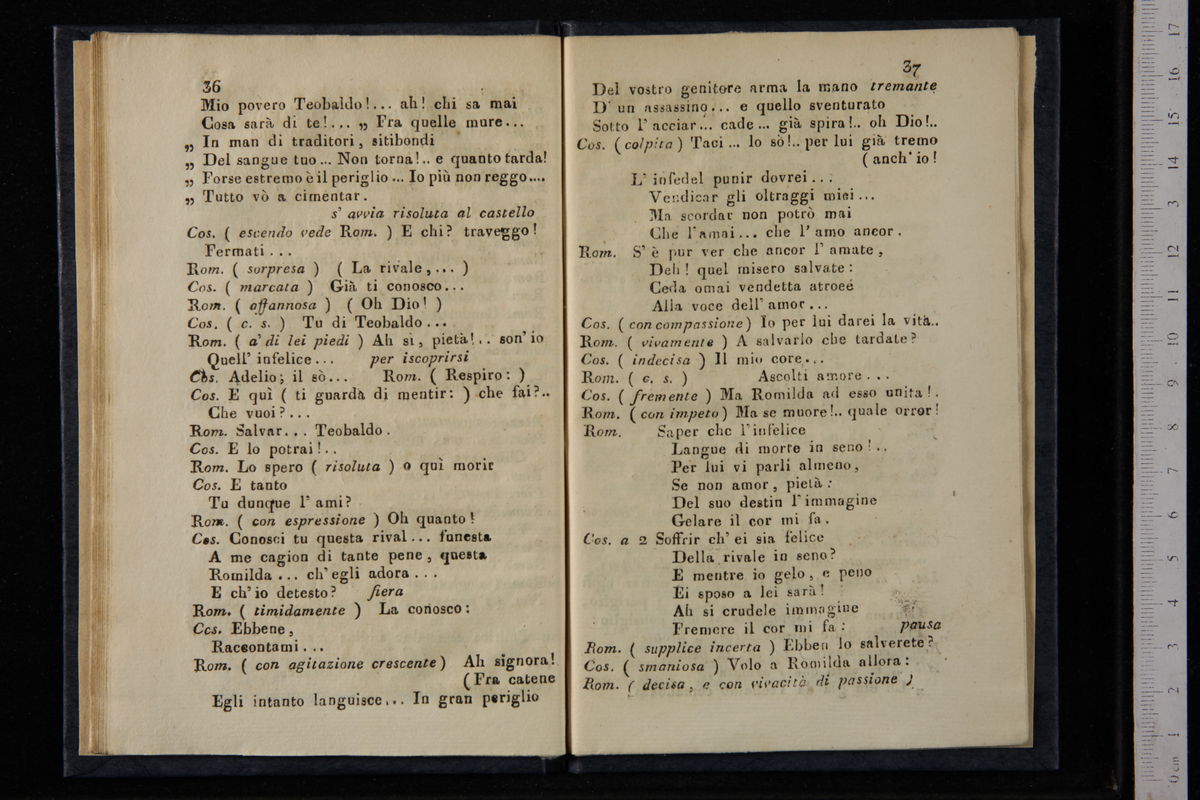 36
Mio povero Teobaldo!... ah! chi sa mai
Cosa sarà di te!... „ Fra quelle mure...
„ In man di traditori, sitibondi
„ Del sangue tuo... Non torna!.. e quanto tarda!
„ Forse estremo è il periglio... Io più non reggo....
„ Tutto vò a cimentar.
s' avvia risoluta al castello
Cos. ( escendo vede Rom. ) E chi? traveggo!
Fermati...
Rom. ( sorpresa ) ( La rivale,... )
Cos. ( marcata ) Già ti conosco...
Rom. ( affannosa ) ( Oh Dio! )
Cos. ( c. s. ) Tu di Teobaldo...
Rom. ( a' di lei piedi ) Ah si, pietà!.. son' io
Quell' infelice... per iscoprirsi
Cos. Adelio; il sò... Rom. ( Respiro: )
Cos. E quì ( ti guardà di mentir: ) che fai?..
Che vuoi?...
Rom. Salvar... Teobaldo.
Cos. E lo potrai!..
Rom. Lo spero ( risoluta ) o quì morir
Cos. E tanto
Tu dunque l' ami?
Rom. ( con espressione ) Oh quanto!
Cos. Conosci tu questa rival... funesta
A me cagion di tante pene, questa
Romilda... ch' egli adora...
E ch' io detesto? fiera
Rom. ( timidamente ) La conosco:
Ccs. Ebbene,
Raccontami...
Rom. ( con agitazione crescente ) Ah signora!
(Fra catene
Egli intanto languisce... In gran periglio
37
Del vostro genitore arma la mano tremante
D' un assassino... e quello sventurato
Sotto l' acciar... cade... già spira!.. oh Dio!..
Cos. ( colpita ) Taci... lo sò!.. per lui già tremo
( anch' io!
L' infedel punir dovrei...
Vendicar gli oltraggi miei...
Ma scordar non potrò mai
Che l'amai... che l' amo ancor.
Rom. S' è pur ver che ancor l' amate,
Deh! quel misero salvate:
Ceda omai vendetta atroce
Alla voce dell' amor...
Cos. ( con compassione ) Io per lui darei la vita..
Rom. ( vivamente ) A salvarlo che tardate?
Cos. ( indecisa ) Il mio core...
Rom. ( c. s. ) Ascolti amore...
Cos. ( fremente ) Ma Romilda ad esso unita!.
Rom. ( con impeto ) Ma se muore!.. quale orror!
Rom. Saper che l'infelice
Langue di morte in seno!..
Per lui vi parli almeno,
Se non amor, pietà:
Del suo destin l' immagine
Gelare il cor mi fa.
Cos. a 2 Soffrir ch' ei sia felice
Della rivale in seno?
E mentre io gelo, e peno
Ei sposo a lei sarà!
Ah si crudele immagine
Fremere il cor mi fa: pausa
Rom. ( supplice incerta ) Ebben lo salverete?
Cos. ( smaniosa ) Volo a Romilda allora:
Rom. ( decisa, e con vivacità di passione )
0 cm 1 2 3 4 5 6 7 8 9 10 11 12 13 14 15 16 17